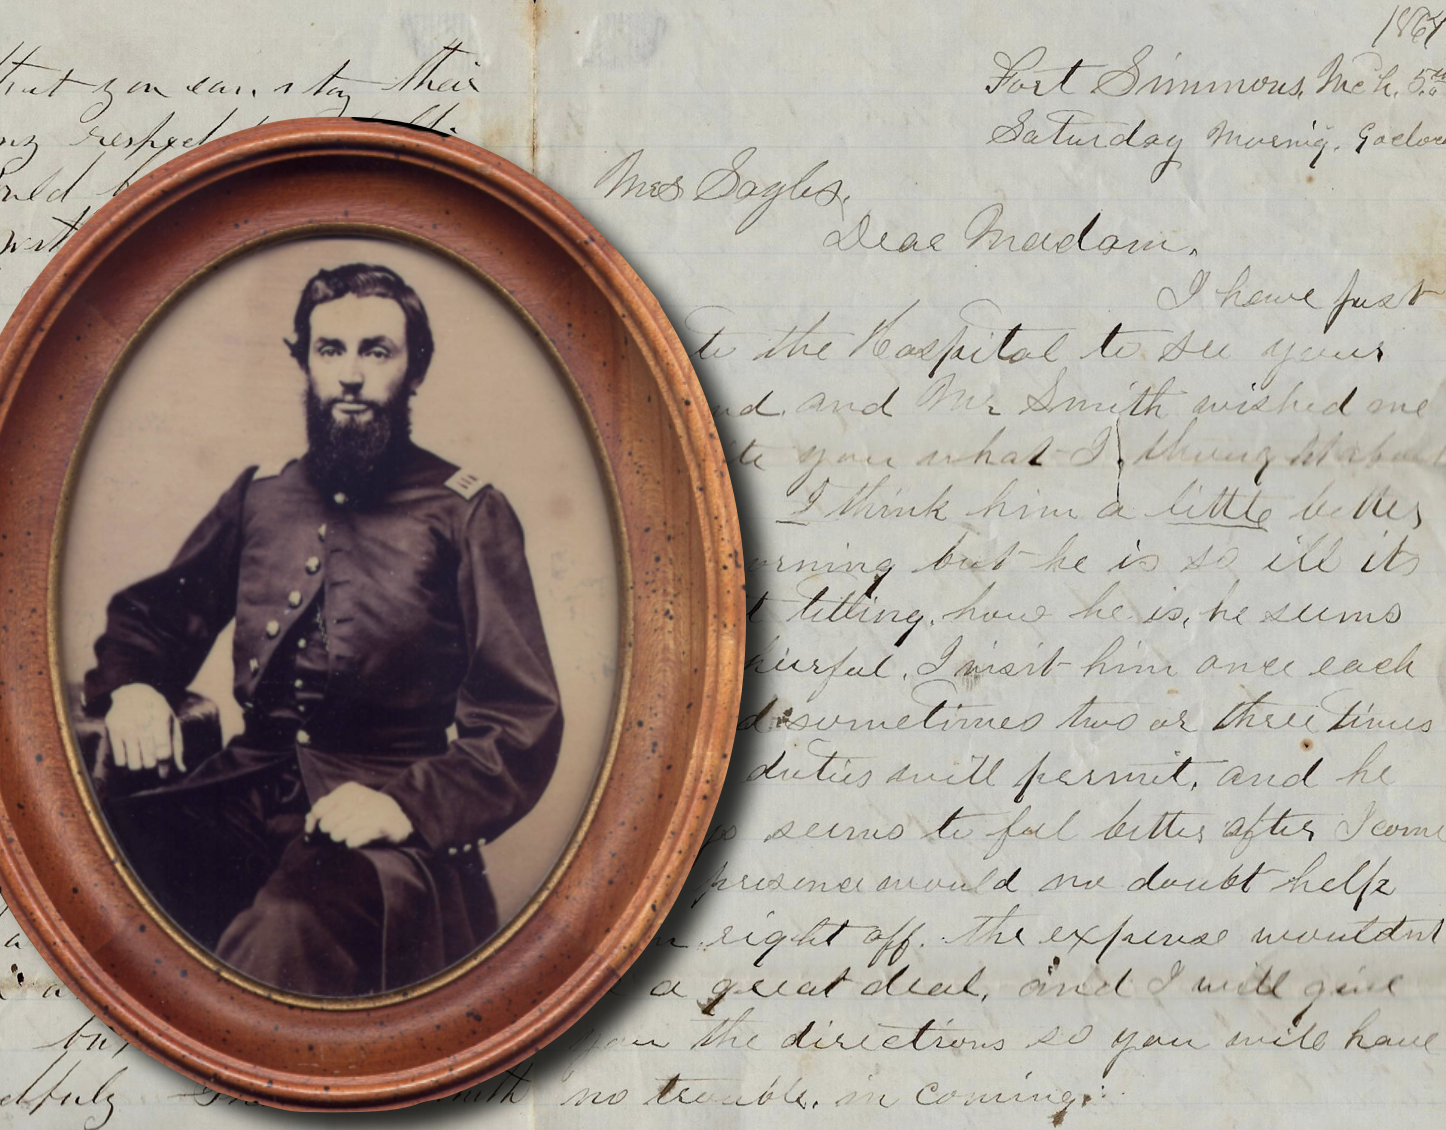 that you can stay their
respect
1864
Fort Simmons, Mch. 5th
Saturday Mornig. 9 oclock
Mrs Sayles.
Dear Madam.
I have just
to the Hospital to see your
and Mr Smith wished me
you what I thought about
I think him a little better
but he is so ill its
telling, how he is, he seems
I visit him once each
sometimes two or three times
duties will permit, and he
seems to feel better after I come
would no doubt help
right off. the expense wouldnt
a great deal, and I will give
you the directions so you will have
no trouble, in coming.